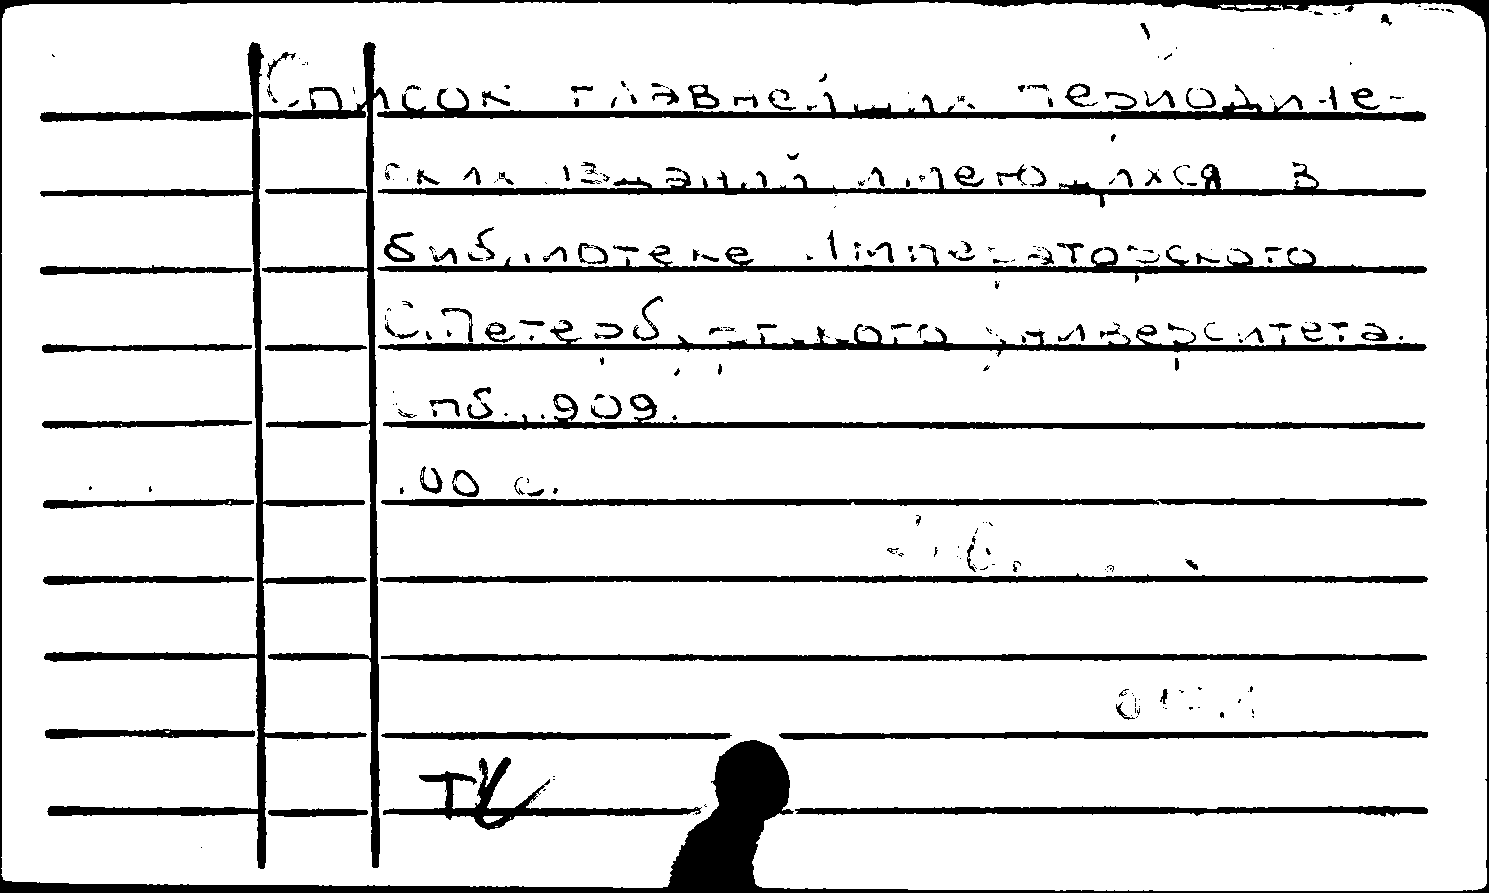 Список главнейших периодиче-
ских изданий имеющихся в
библиотеке Императорского
С.Петербургского университета.
Спб. 1909.
100 с.